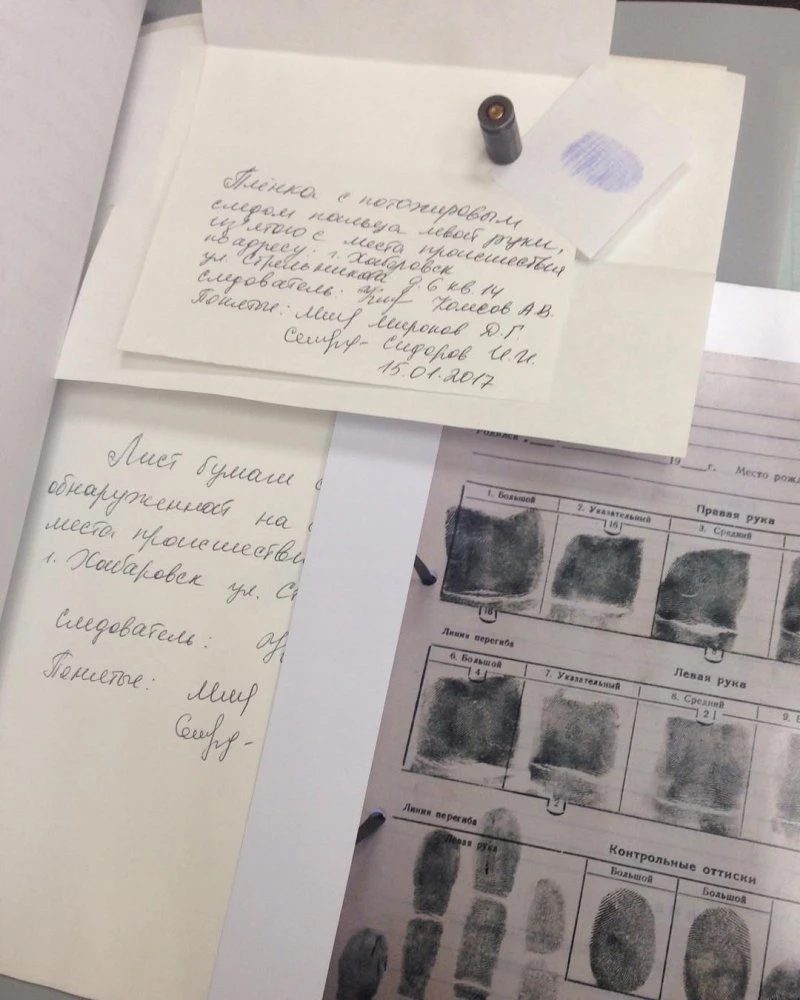 Плёнка с потожировым
следом пальца левой руки,
изъятого с места происшествия
по адресу: г. Хабаровск
ул. Стрельникова д. 6 кв. 14
следователь: Комсов А.В.
Понятые: Миронов Д.Г.
Сидоров И.И.
15.01.2017
Лист бумаги с
обнаруженной на
места происшестви
г. Хабаровск ул. Ст
следователь:
Понятые:
19 г. Место рож
Правая рука
1. Большой
2. Указательный
3. Средний
16
16
8
Линия перегиба
Левая рука
6. Большой
7. Указательный
8. Средний
9.
4
2
2
Линия перегиба
Левая рука
Контрольные оттиски
Большой
Большой